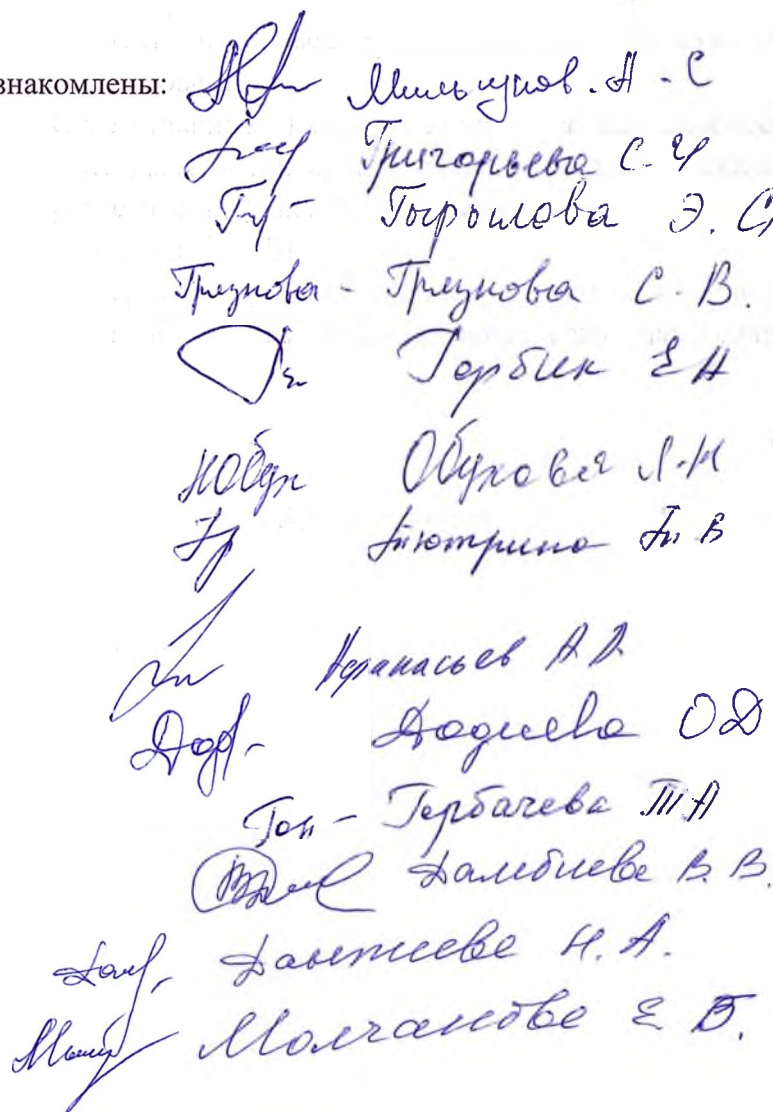 знакомлены: Мильчунов. А - С
Григорьева С. Ч
Тырылова Э. С
Грязнова - Грязнова С. В.
Горбик Е А
НОбух Обухова Л. Н
Тютрина Т В
Афанасьев А А
Дод. - Додиева О Д
Гон - Горбачева Т А
Дамбиева В. В.
Данжеева Н. А.
Молчанова Е Б.